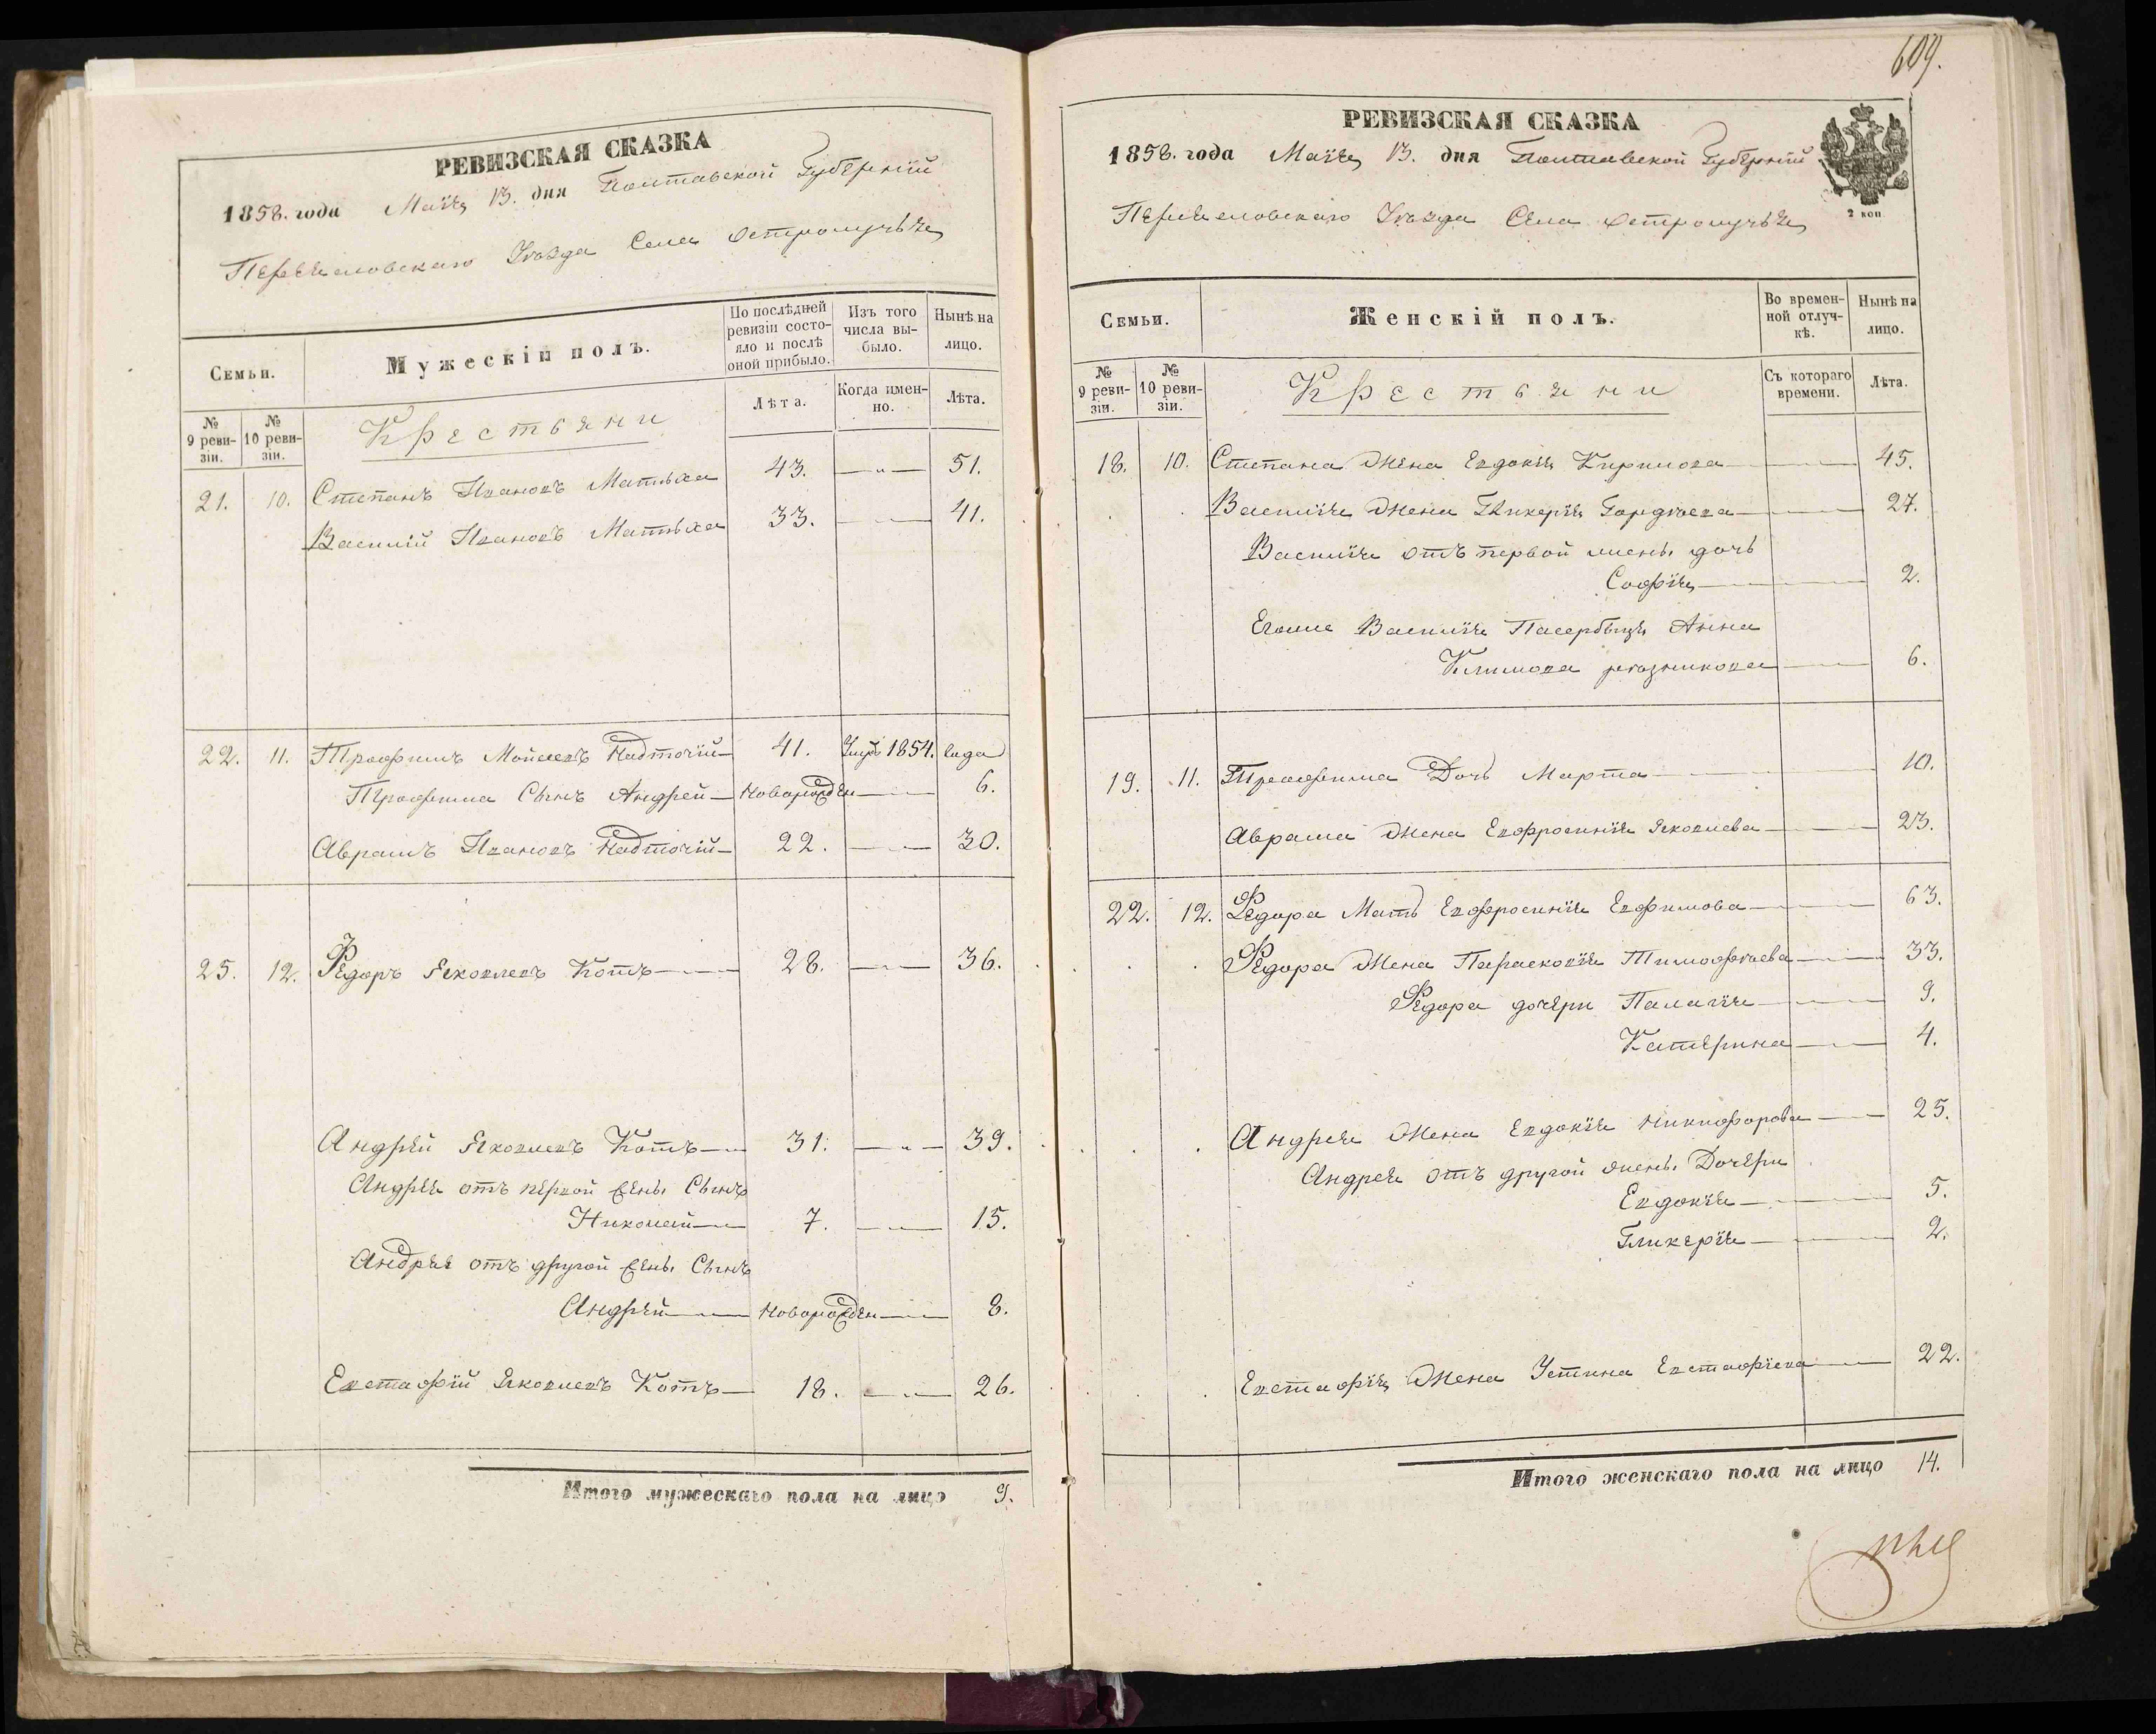 РЕВИЗСКАЯ СКАЗКА
1858. года Маія 13. дня Полтавской Губерніи
Переяславскаго Уѣзда Села Остролучья
Семьи.
Мужескій полъ.
По послѣдней ревизіи состо-
яло и послѣ оной прибыло.
Изъ того числа вы-
было.
Нынѣ на лицо.
№ 9 реви-
зіи.
№ 10 реви-
зіи.
Крестьяни
Лѣта.
Когда имен-
но.
Лѣта.
21. 10. Степанъ Ивановъ Матвѣха 43. — „ — 51.
Василій Ивановъ Матвѣха 33. — „ — 41.
22. 11. Трофимъ Мойсеевъ Надточій 41. Умръ 1854. года
Трофима Сынъ Андрей Новорожден — „ — 6.
Аврамъ Ивановъ Надточій 22. — „ — 30.
25. 12. Ѳедоръ Яковлевъ Котъ 28. — „ — 36.
Андрей Яковлевъ Котъ 31. — „ — 39.
Андрея отъ первой жены Сынъ
Николай 7. — „ — 15.
Андрея отъ другой жены Сынъ
Андрей Новорожден — „ — 8.
Евстафій Яковлевъ Котъ 18. — „ — 26.
Итого мужескаго пола на лицо 9.
609.
РЕВИЗСКАЯ СКАЗКА
1858. года Маія 13. дня Полтавской Губерніи
2 коп
Переяславскаго Уѣзда Села Остролучья
Семьи.
Женскій полъ.
Во времен-
ной отлуч-
кѣ.
Нынѣ на лицо.
№ 9 реви-
зіи.
№ 10 реви-
зіи.
Крестьяни
Съ котораго времени.
Лѣта.
18. 10. Степана Жена Евдокія Кирилова 45.
Василія Жена Гликерія Гордѣева 27.
Василія отъ первой жены дочь
Софія 2.
Егоже Василія Пасербица Анна
Климова рѣзникова 6.
19. 11. Трофима Дочь Марта 10.
Аврама Жена Евфросинія Яковлева 23.
22. 12. Ѳедора Мать Евфросинія Евфимова 63.
Ѳедора Жена Парасковія Тимофѣева 33.
Ѳедора дочери Палагія 9.
Катерина 4.
Андрея Жена Евдокія Никифорова 25.
Андрея отъ другой жены Дочери
Евдокія 5.
Гликерія 2.
Евстафія Жена Устина Евстафіева 22.
Итого женскаго пола на лицо 14.